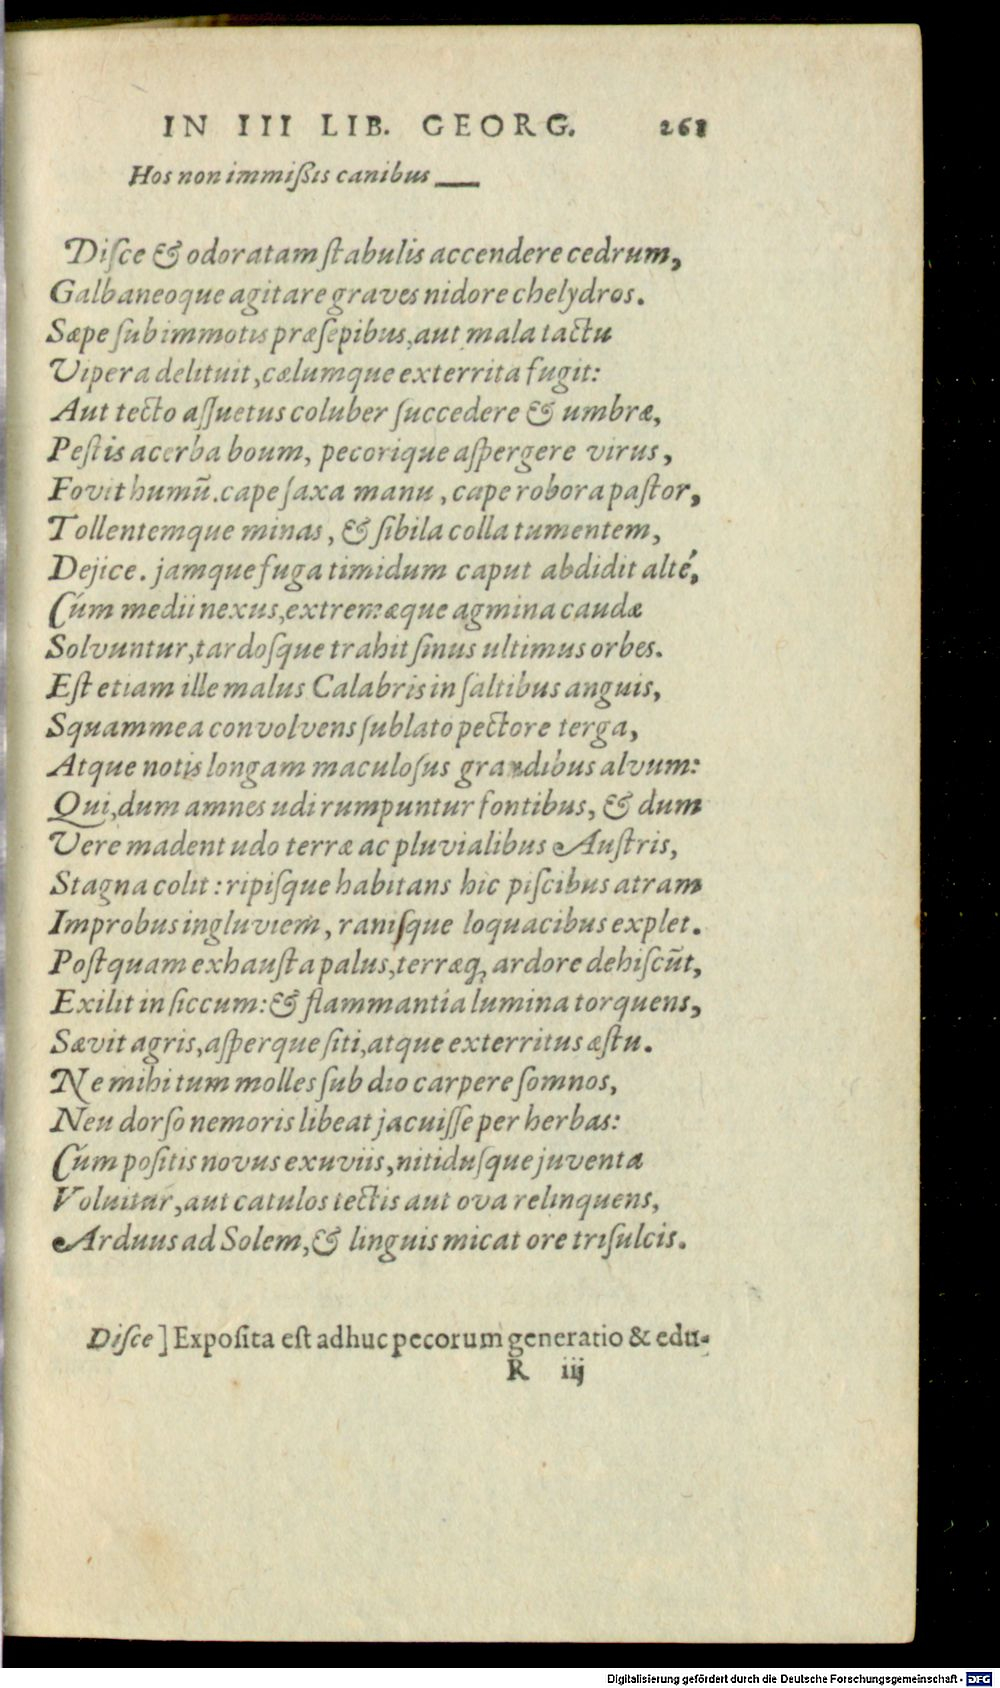 IN III LIB. GEORG. 261
Hos non immißis canibus ___
Diſce & odoratam ſtabulis accendere cedrum,
Galbaneoque agitare graves nidore chelydros.
Sæpe ſub immotis præſepibus, aut mala tactu
Vipera delituit, cælumque exterrita fugit:
Aut tecto aſſuetus coluber ſuccedere & umbræ,
Peſtis acerba boum, pecorique aſpergere virus,
Fovit humū. cape ſaxa manu, cape robora paſtor,
Tollentemque minas, & ſibila colla tumentem,
Dejice. jamque fuga timidum caput abdidit altè,
Cùm medii nexus, extremæque agmina caudæ
Solvuntur, tardoſque trahit ſinus ultimus orbes.
Eſt etiam ille malus Calabris in ſaltibus anguis,
Squammea convolvens ſublato pectore terga,
Atque notis longam maculoſus grandibus alvum:
Qui, dum amnes udi rumpuntur fontibus, & dum
Vere madent udo terræ ac pluvialibus Auſtris,
Stagna colit: ripiſque habitans hic piſcibus atram
Improbus ingluviem, raniſque loquacibus explet.
Poſtquam exhauſta palus, terræq; ardore dehiſcūt,
Exilit in ſiccum: & flammantia lumina torquens,
Sævit agris, aſperque ſiti, atque exterritus æſtu.
Ne mihi tum molles ſub dio carpere ſomnos,
Neu dorſo nemoris libeat jacuiſſe per herbas:
Cum poſitis novus exuviis, nitiduſque juventa
Voluitur, aut catulos tectis aut ova relinquens,
Arduus ad Solem, & linguis micat ore triſulcis.
Diſce ] Expoſita eſt adhuc pecorum generatio & edu-
R iij
Digitalisierung gefördert durch die Deutsche Forschungsgemeinschaft - DFG